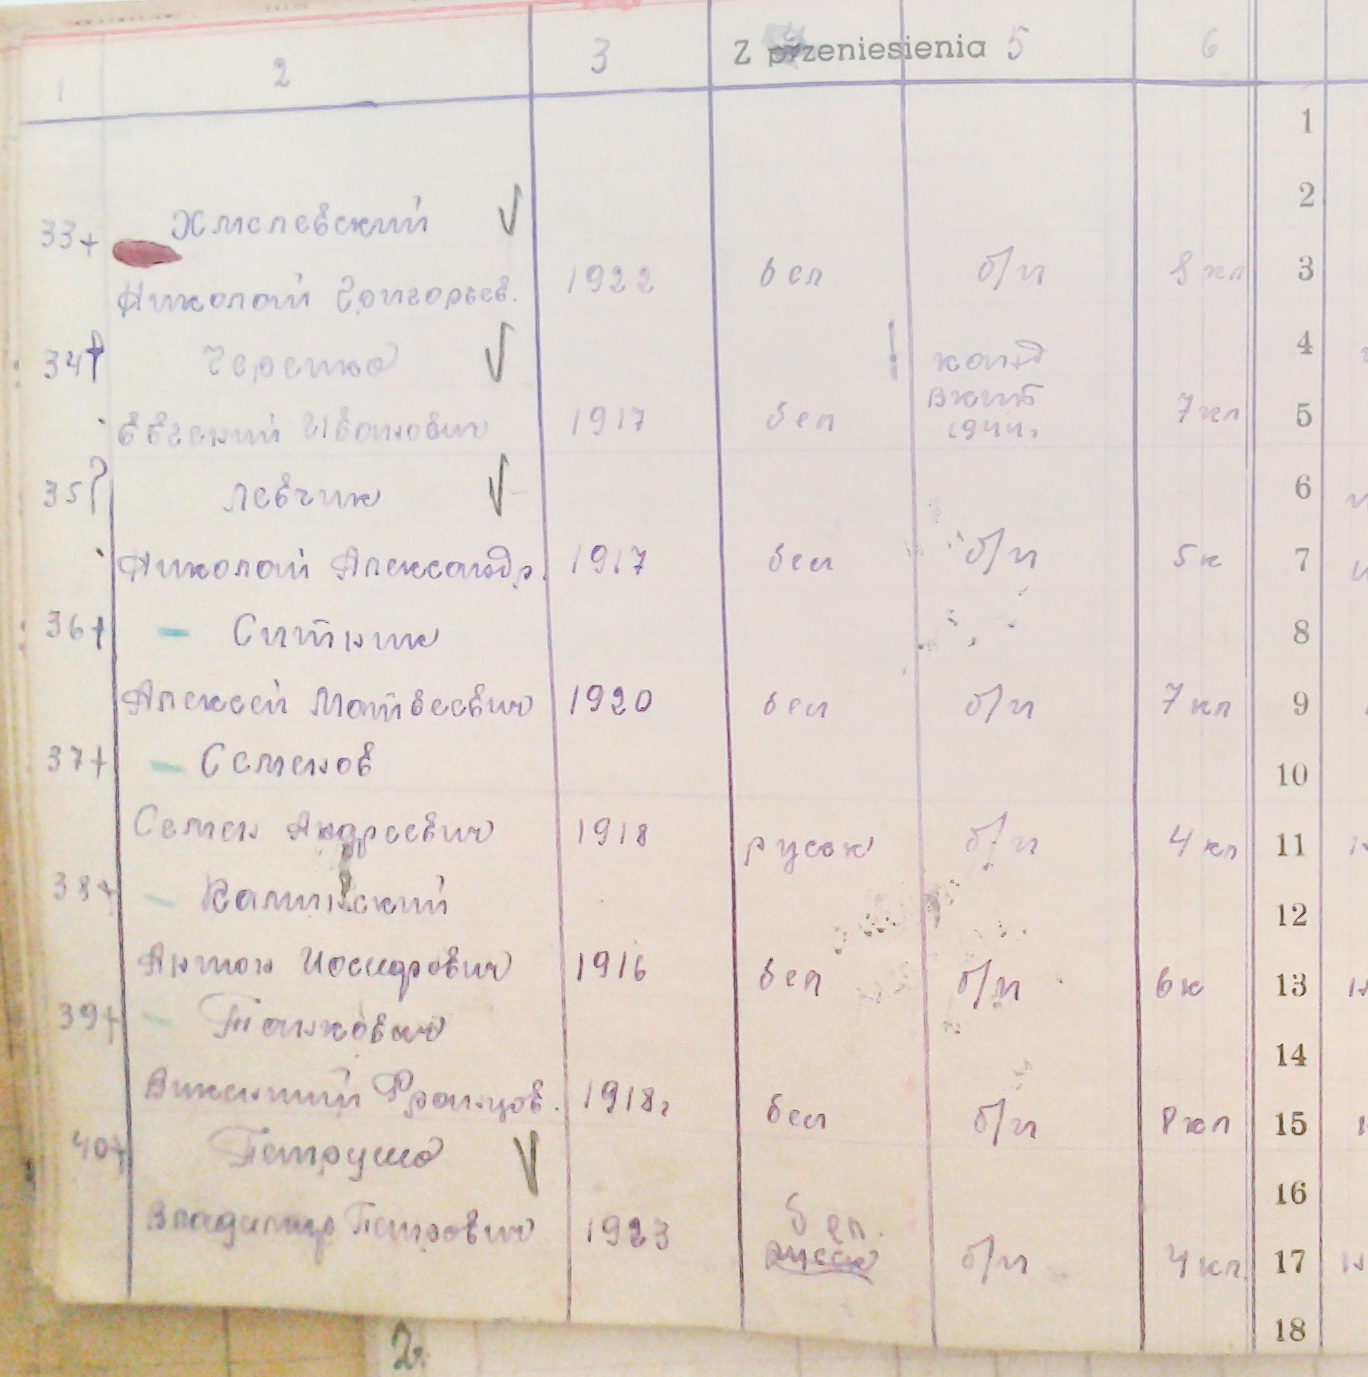 1 2 3 Z przeniesienia 5 6
1
2
33+ Хмелевский
Николай Григорьев. 1922 бел б/п 8 кл 3
34 Черепко канд 4
Евгений Иванович 1917 бел вкпб 7 кл 5
1944г
35 Левчик 6
Николай Александр. 1917 бел б/п 5 к 7
36+ - Ситник 8
Алексей Матвеевич 1920 бел б/п 7 кл 9
37+ - Семенов 10
Семен Андреевич 1918 русск б/п 4 кл 11
38+ - Калинский 12
Антон Иосифович 1916 бел б/п 6 к 13
39+ - Панкевич 14
Викентий Францов. 1918г бел б/п 8 кл 15
40+ Петруша 16
Владимир Петрович 1923 бел. б/п 4 кл. 17
русск
18
2.